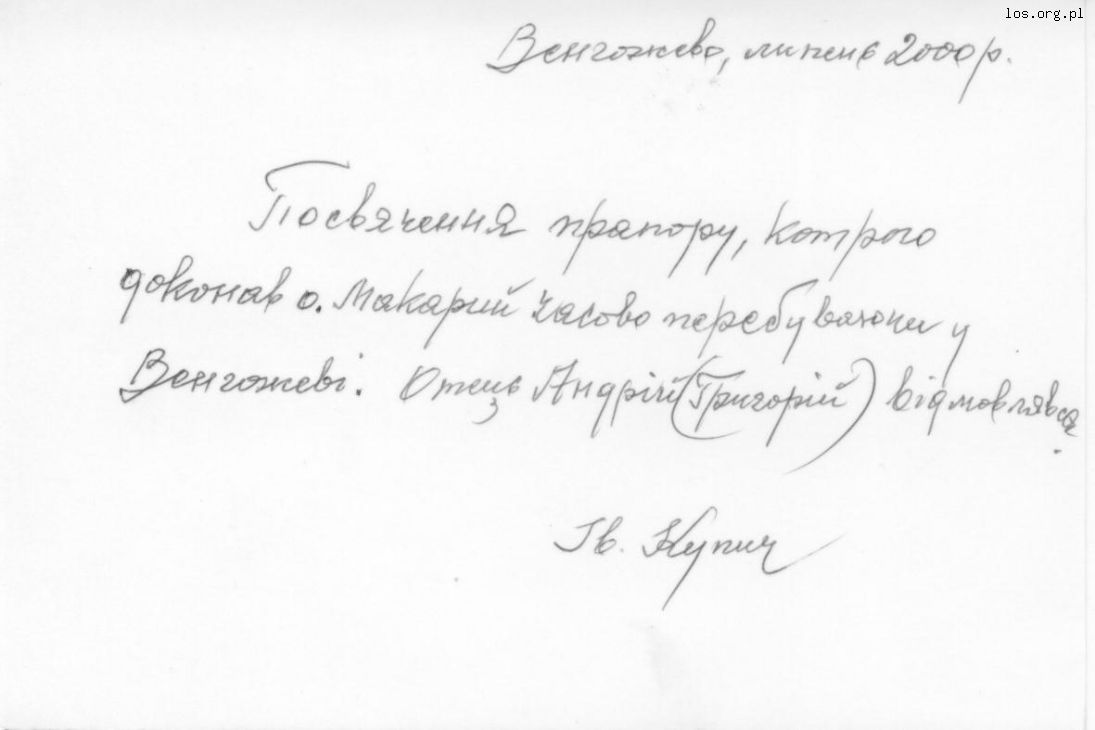 los.org.pl
Венгожево, липень 2000 р.
Посвячення прапору, котрого
доконав о. Макарий часово перебуваючи у
Венгожеві. Отець Андрій (Григорій) відмовлявся.
Ів. Купич